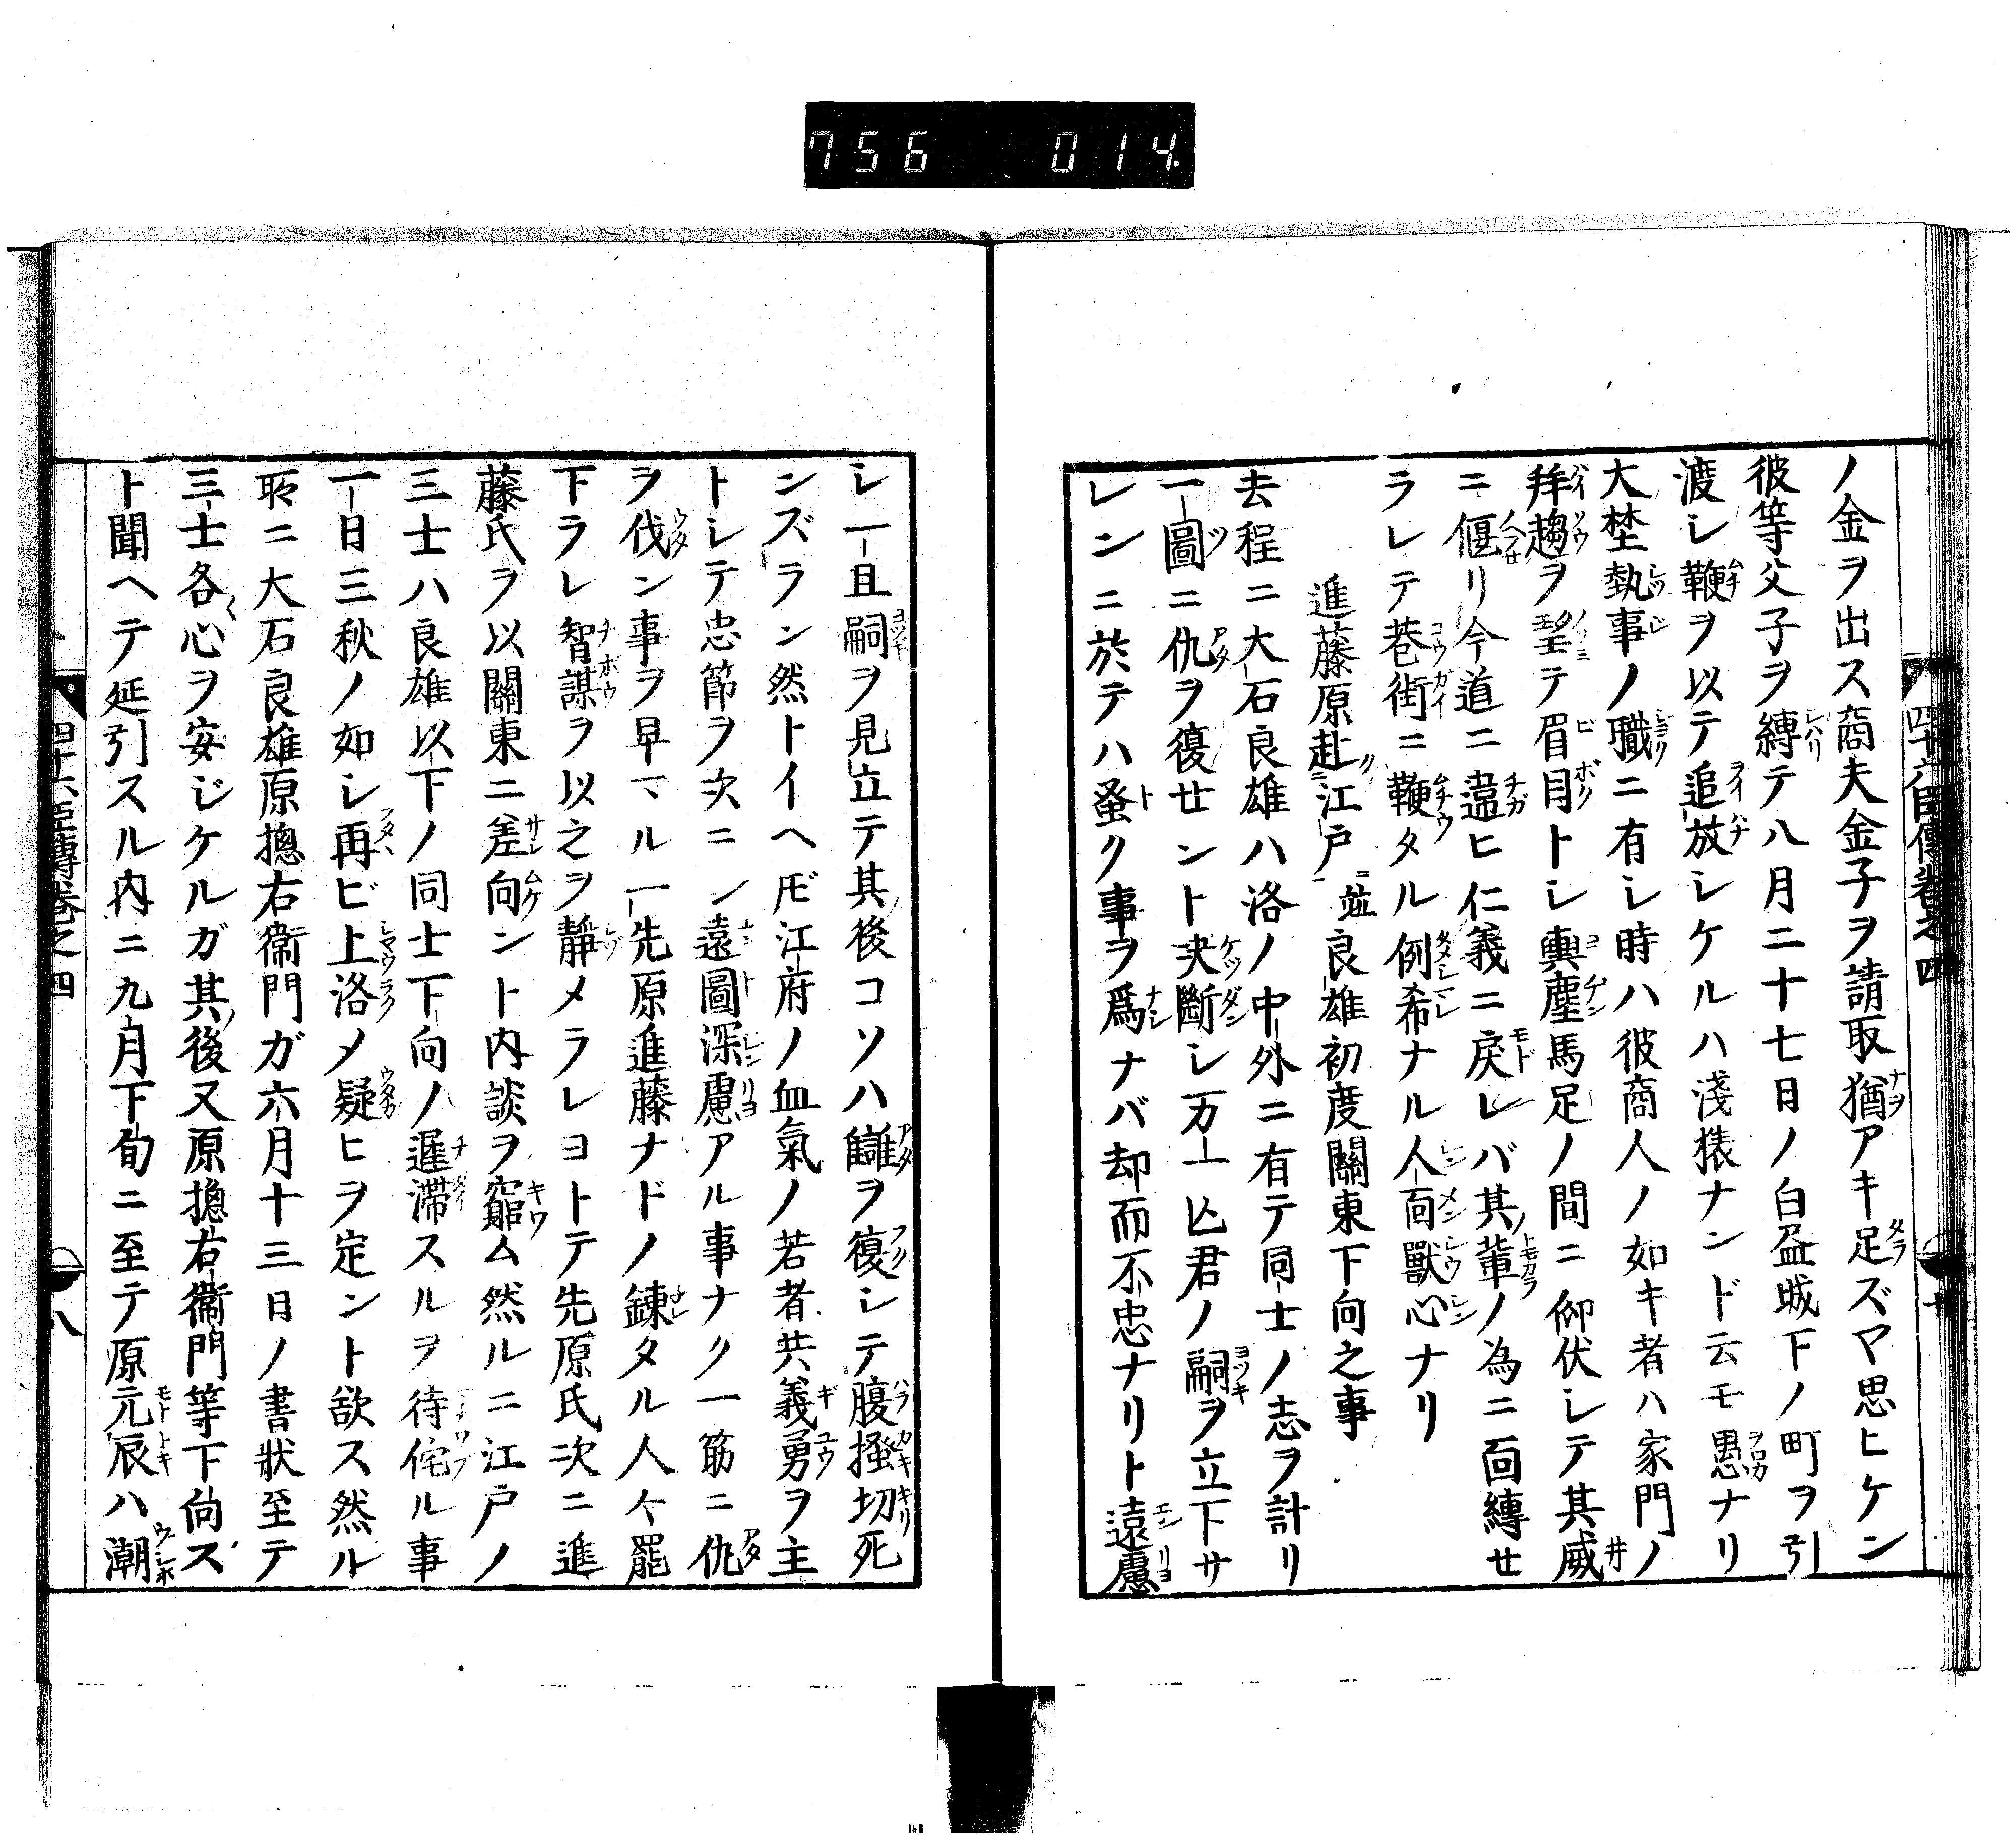 756 014
ノ金ヲ出ス商夫金子ヲ請取猶アキ足ズマ思ヒケン
彼等父子ヲ縛テ八月二十七日ノ白昼城下ノ町ヲ引
渡シ鞭ヲ以テ追放シケルハ淺猿ナンド云モ愚ナリ
大埜執事ノ職ニ有シ時ハ彼商人ノ如キ者ハ家門ノ
拜趨ヲ望テ眉目トシ輿塵馬足ノ間ニ仰伏シテ其威
ニ偃リ今道ニ違ヒ仁義ニ戻レバ其輩ノ為ニ面縛セ
ラレテ巷街ニ鞭タル例希ナル人面獸心ナリ
進藤原赴江戸並良雄初度關東下向之事
去程ニ大石良雄ハ洛ノ中外ニ有テ同士ノ志ヲ計リ
一圖ニ仇ヲ復セント决斷シ万一亡君ノ嗣ヲ立下サ
レンニ於テハ蚤ク事ヲ爲ナバ却而不忠ナリト遠慮
シ一旦嗣ヲ見立テ其後コソハ讎ヲ復シテ腹搔切死
ンズラン然トイヘ𪜈江府ノ血氣ノ若者共義勇ヲ主
トシテ忠節ヲ次ニシ遠圖深慮アル事ナク一筋ニ仇
ヲ伐ン事ヲ早マル一先原進藤ナドノ錬タル人々罷
下ラレ智謀ヲ以之ヲ靜メラレヨトテ先原氏次ニ進
藤氏ヲ以關東ニ差向ント内談ヲ窮ム然ルニ江戸ノ
三士ハ良雄以下ノ同士下向ノ遲滞スルヲ待侘ル事
一日三秋ノ如シ再ビ上洛メ疑ヒヲ定ント欲ス然ル
所ニ大石良雄原摠右衛門ガ六月十三日ノ書狀至テ
三士各〱心ヲ安ジケルガ其後又原摠右衛門等下向ス
ト聞ヘテ延引スル内ニ九月下旬ニ至テ原元辰ハ潮
四十六臣傳卷之四
八